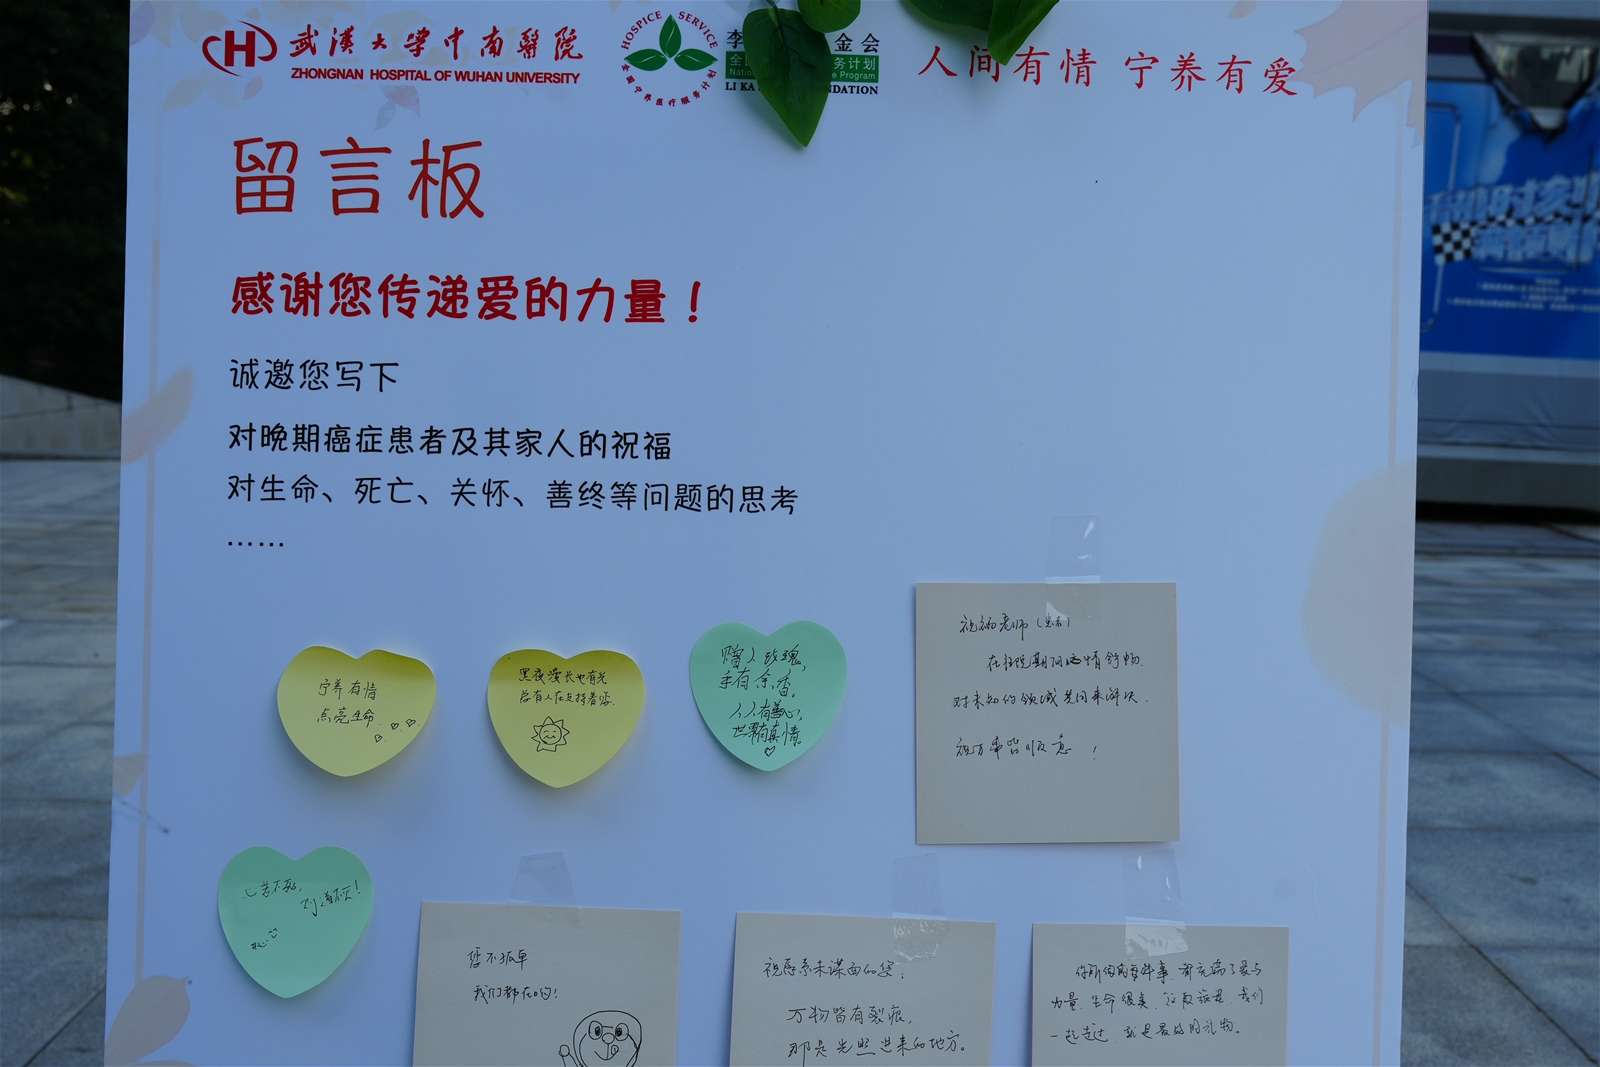 武漢大学中南醫院
ZHONGNAN HOSPITAL OF WUHAN UNIVERSITY
HOSPICE SERVICE
全国宁养医疗服务计划
李
金会
全
务计划
Nation
e Program
LI KA
NDATION
人间有情 宁养有爱
留言板
感谢您传递爱的力量！
诚邀您写下
对晚期癌症患者及其家人的祝福
对生命、死亡、关怀、善终等问题的思考
......
宁养有情
点亮生命
黑夜漫长也有光
总有人在支持着您.
赠人玫瑰,
手有余香。
人人有善心,
世界有真情。
祝福老师（患者）
在住院期间心情舒畅.
对未知的领域共同来解决.
祝万事皆顺意！
心若不死,
您不孤单
我们都在哟!
祝愿素未谋面的您:
万物皆有裂痕,
那是光照进来的地方。
你所做的每件事,都充满了爱与
力量.生命很美,这段旅程,我们
一起走过,就是最好的礼物。